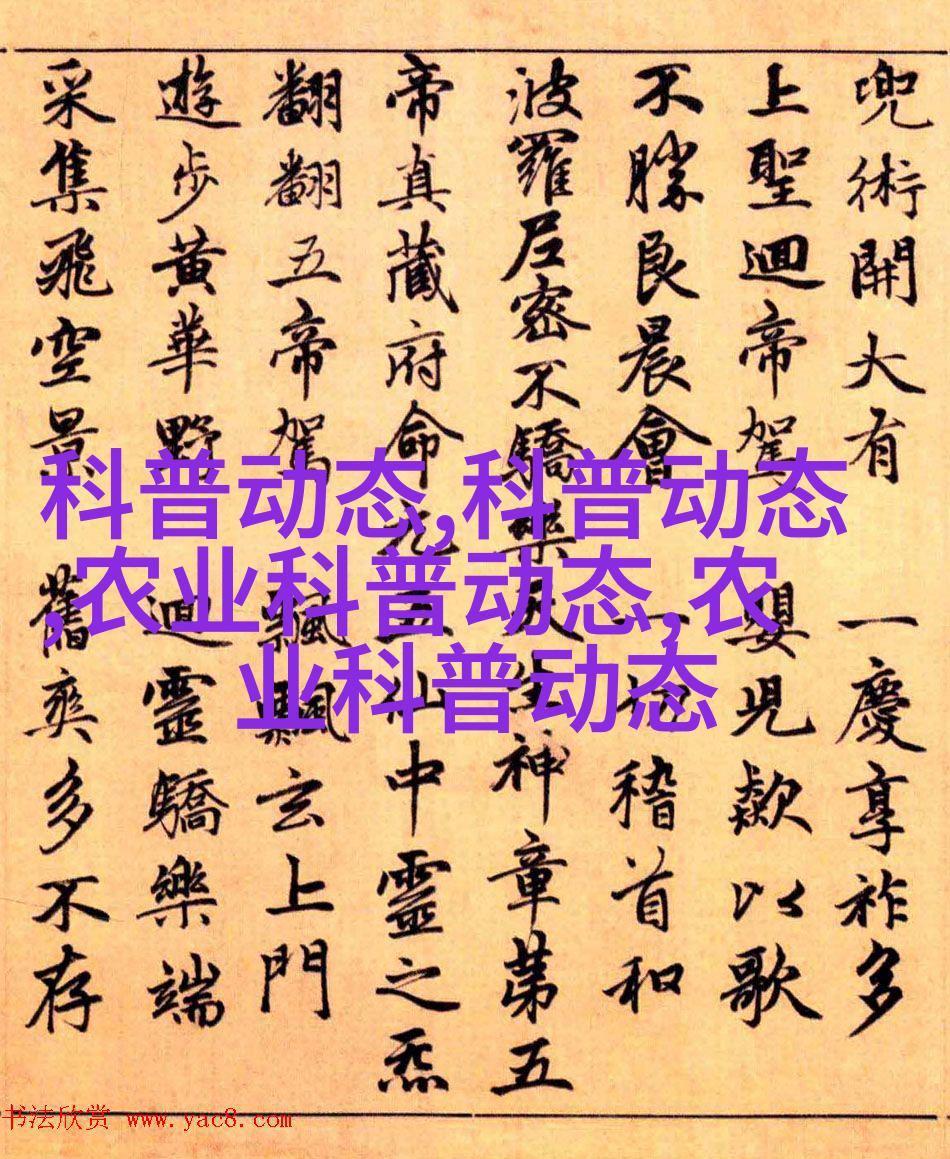 兜術開大有 一慶享祚多
上聖迴帝駕 嬰児歘以歌
不勝良晨會 一切稽首和
波羅尼密不驕樂天生神章第五
帝真藏府命元三仙中靈之炁
翻翻五帝駕 飄飄玄上門
遊步黄華野 迴靈驕樂端
采集飛空景 舊爽多不存
科普动态,科普动态
,农业科普动态,农
业科普动态
书法欣赏 www.yac8.com